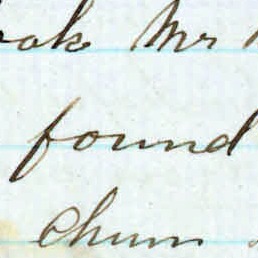 Mr
found
chum